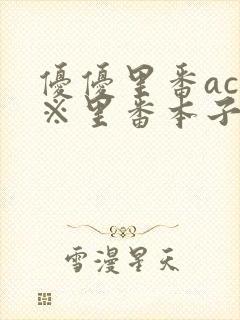 優優里番ac
※里番本子
雪漫星天